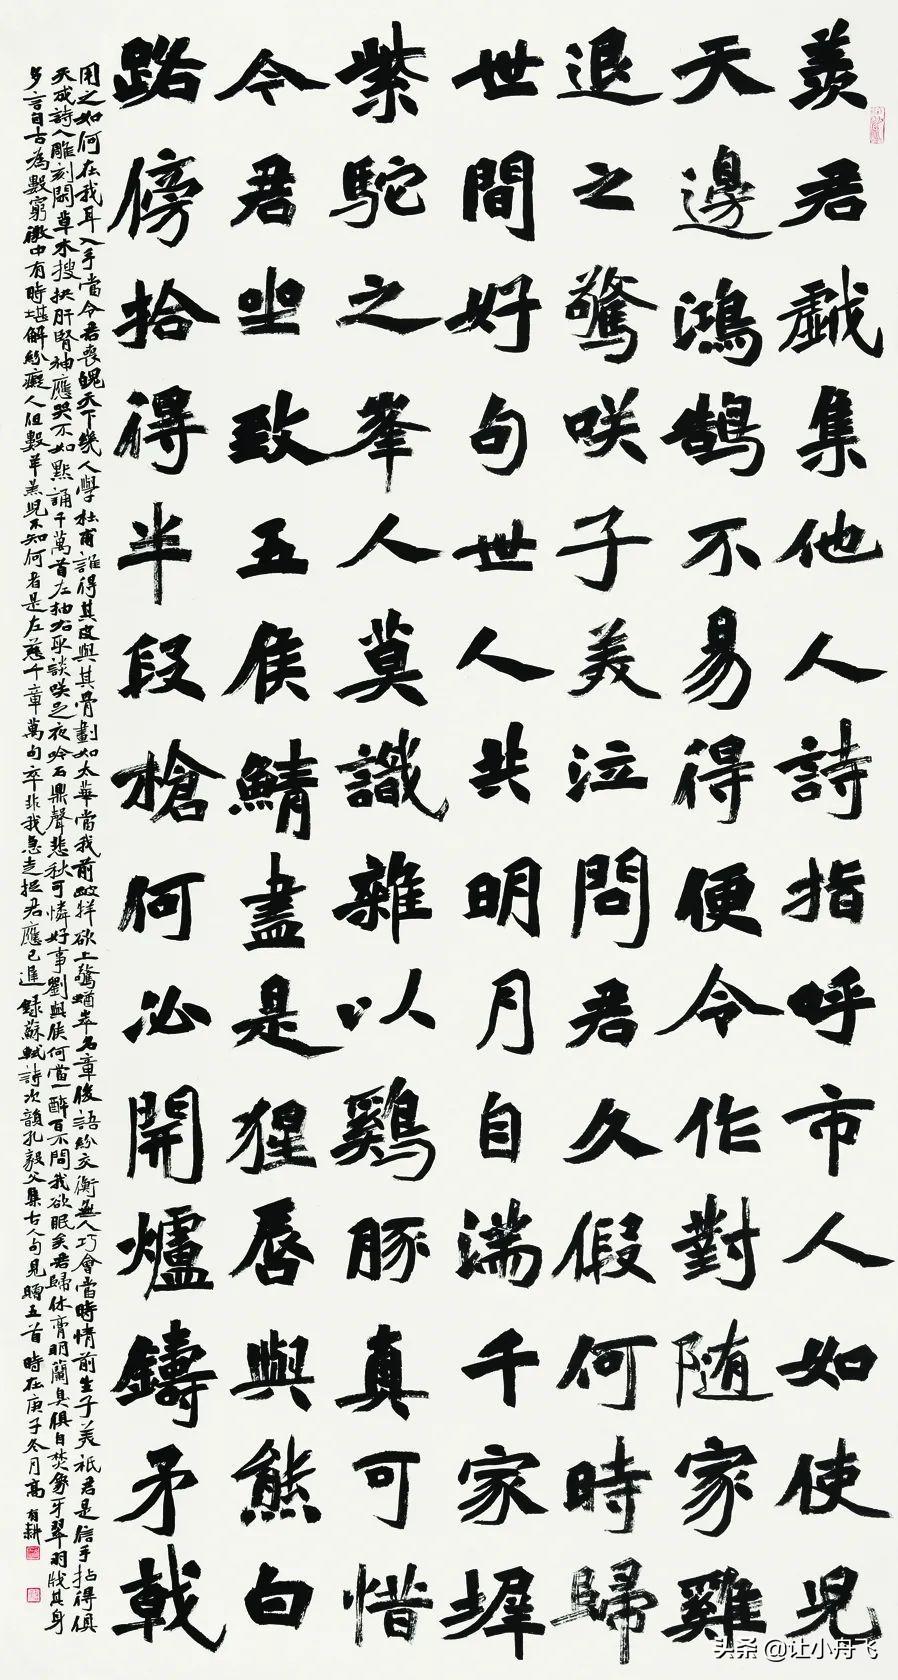 羨君戲集他人詩指呼市人如使兒
天邊鴻鵠不易得便令作對随家雞
退之驚咲子美泣問君久假何時歸
世間好句世人共明月自滿千家墀
紫駝之峯人莫識雜以鷄豚真可惜
今君坐致五侯鯖盡是猩唇與熊白
路傍拾得半段槍何必開爐鑄矛戟
用之如何在我耳入手當令君喪魄天下幾人學杜甫誰得其皮與其骨劃如太華當我前跛牂欲上驚崷崒名章俊語紛交衡無人巧會當時情前生子美祇君是信手拈得俱
天成詩人雕刻閑草木搜抉肝腎神應哭不如默誦千萬首左抽右取談咲足夜吟石鼎聲悲秋可憐好事劉與侯何當一醉百不問我欲眠矣君歸休膏明蘭臭俱自焚象牙翠羽戕其身
多言自古為數窮微中有時堪解紛癡人但數羊羔兒不知何者是左慈千章萬句卒非我急走捉君應已遲 錄蘇軾詩次韻孔毅父集古人句見贈五首 時在庚子冬月高有耕
头条 @让小舟飞